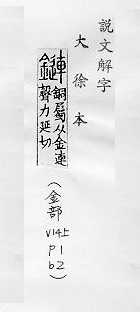 說文解字
大徐本
鏈 銅屬从金連
聲力延切
(金部
V14上
p1
b2)